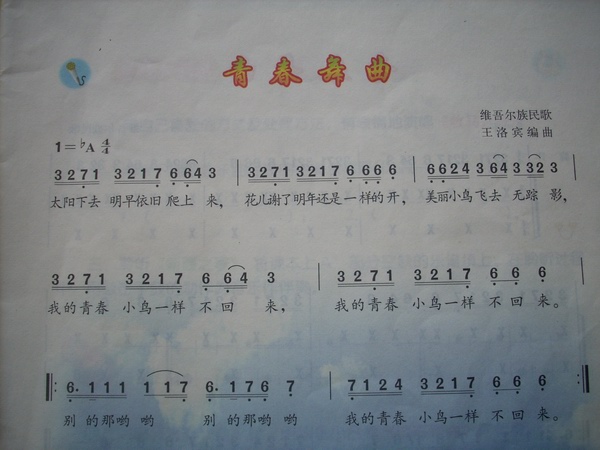 青春舞曲
维吾尔族民歌
王洛宾编曲
1=♭A 4/4
3271 3217 6643 | 3271 3217 666 6 | 6643 2346 3432 3 |
太阳下去 明早依旧 爬上 来, 花儿谢了明年还是一样的开, 美丽小鸟飞去 无踪 影,
3271 3217 664 3 | 3271 3217 66 6 |
我的青春 小鸟一样 不回 来, 我的青春 小鸟一样 不回 来。
‖: 6· 111 117 | 6· 176 7 | 7124 3217 66 6 :‖
别 的那哟 哟 别 的那哟 哟 我的青春 小鸟一样 不回 来。